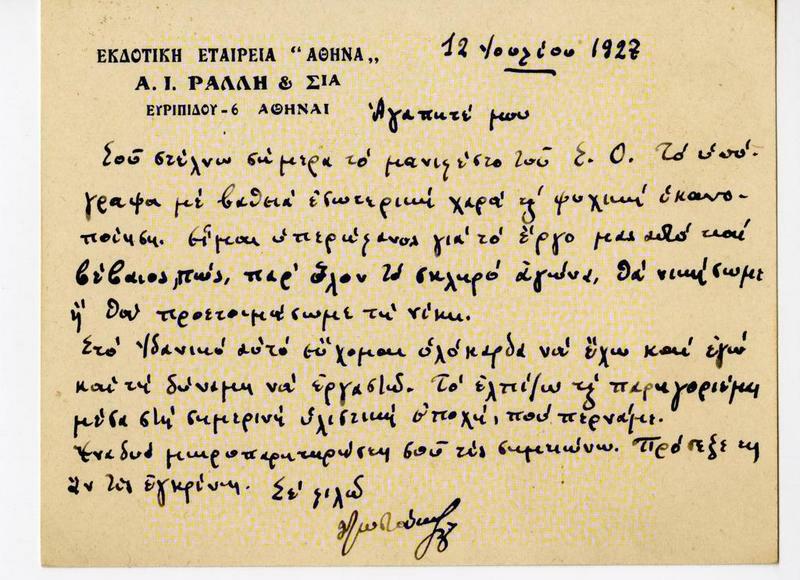 ΕΚΔΟΤΙΚΗ ΕΤΑΙΡΕΙΑ “ΑΘΗΝΑ„
Α. Ι. ΡΑΛΛΗ & ΣΙΑ
ΕΥΡΙΠΙΔΟΥ - 6 ΑΘΗΝΑΙ
12 Ἰουλίου 1927
Ἀγαπητέ μου
Σοῦ στέλνω σήμερα τό μανιφέστο τοῦ Σ. Ο. Τό ὑπό-
γραψα μέ βαθειά ἐσωτερική χαρά καί ψυχική ἱκανο-
ποίηση. Εἶμαι ὑπερήφανος γιά τό ἔργο μας αὐτό καί
βέβαιος, πώς, παρ' ὅλον τό σκληρό ἀγώνα, θά νικήσωμε
ἤ θά προετοιμάσωμε τή νίκη.
Στό ἰδανικό αὐτό εὔχομαι ὁλόκαρδα νά ἔχω καί ἐγώ
καί τή δύναμη νά ἐργασθῶ. Τό ἐλπίζω καί παρηγοριέμαι
μέσα στή σημερινή ὑλιστική ἐποχή, πού περνᾶμε.
Ἕνα δυό μικροπαρατηρήσεις σοῦ τές σημειώνω. Πρόσεξέ τες
ἄν τές ἐγκρίνῃς. Σέ φιλῶ